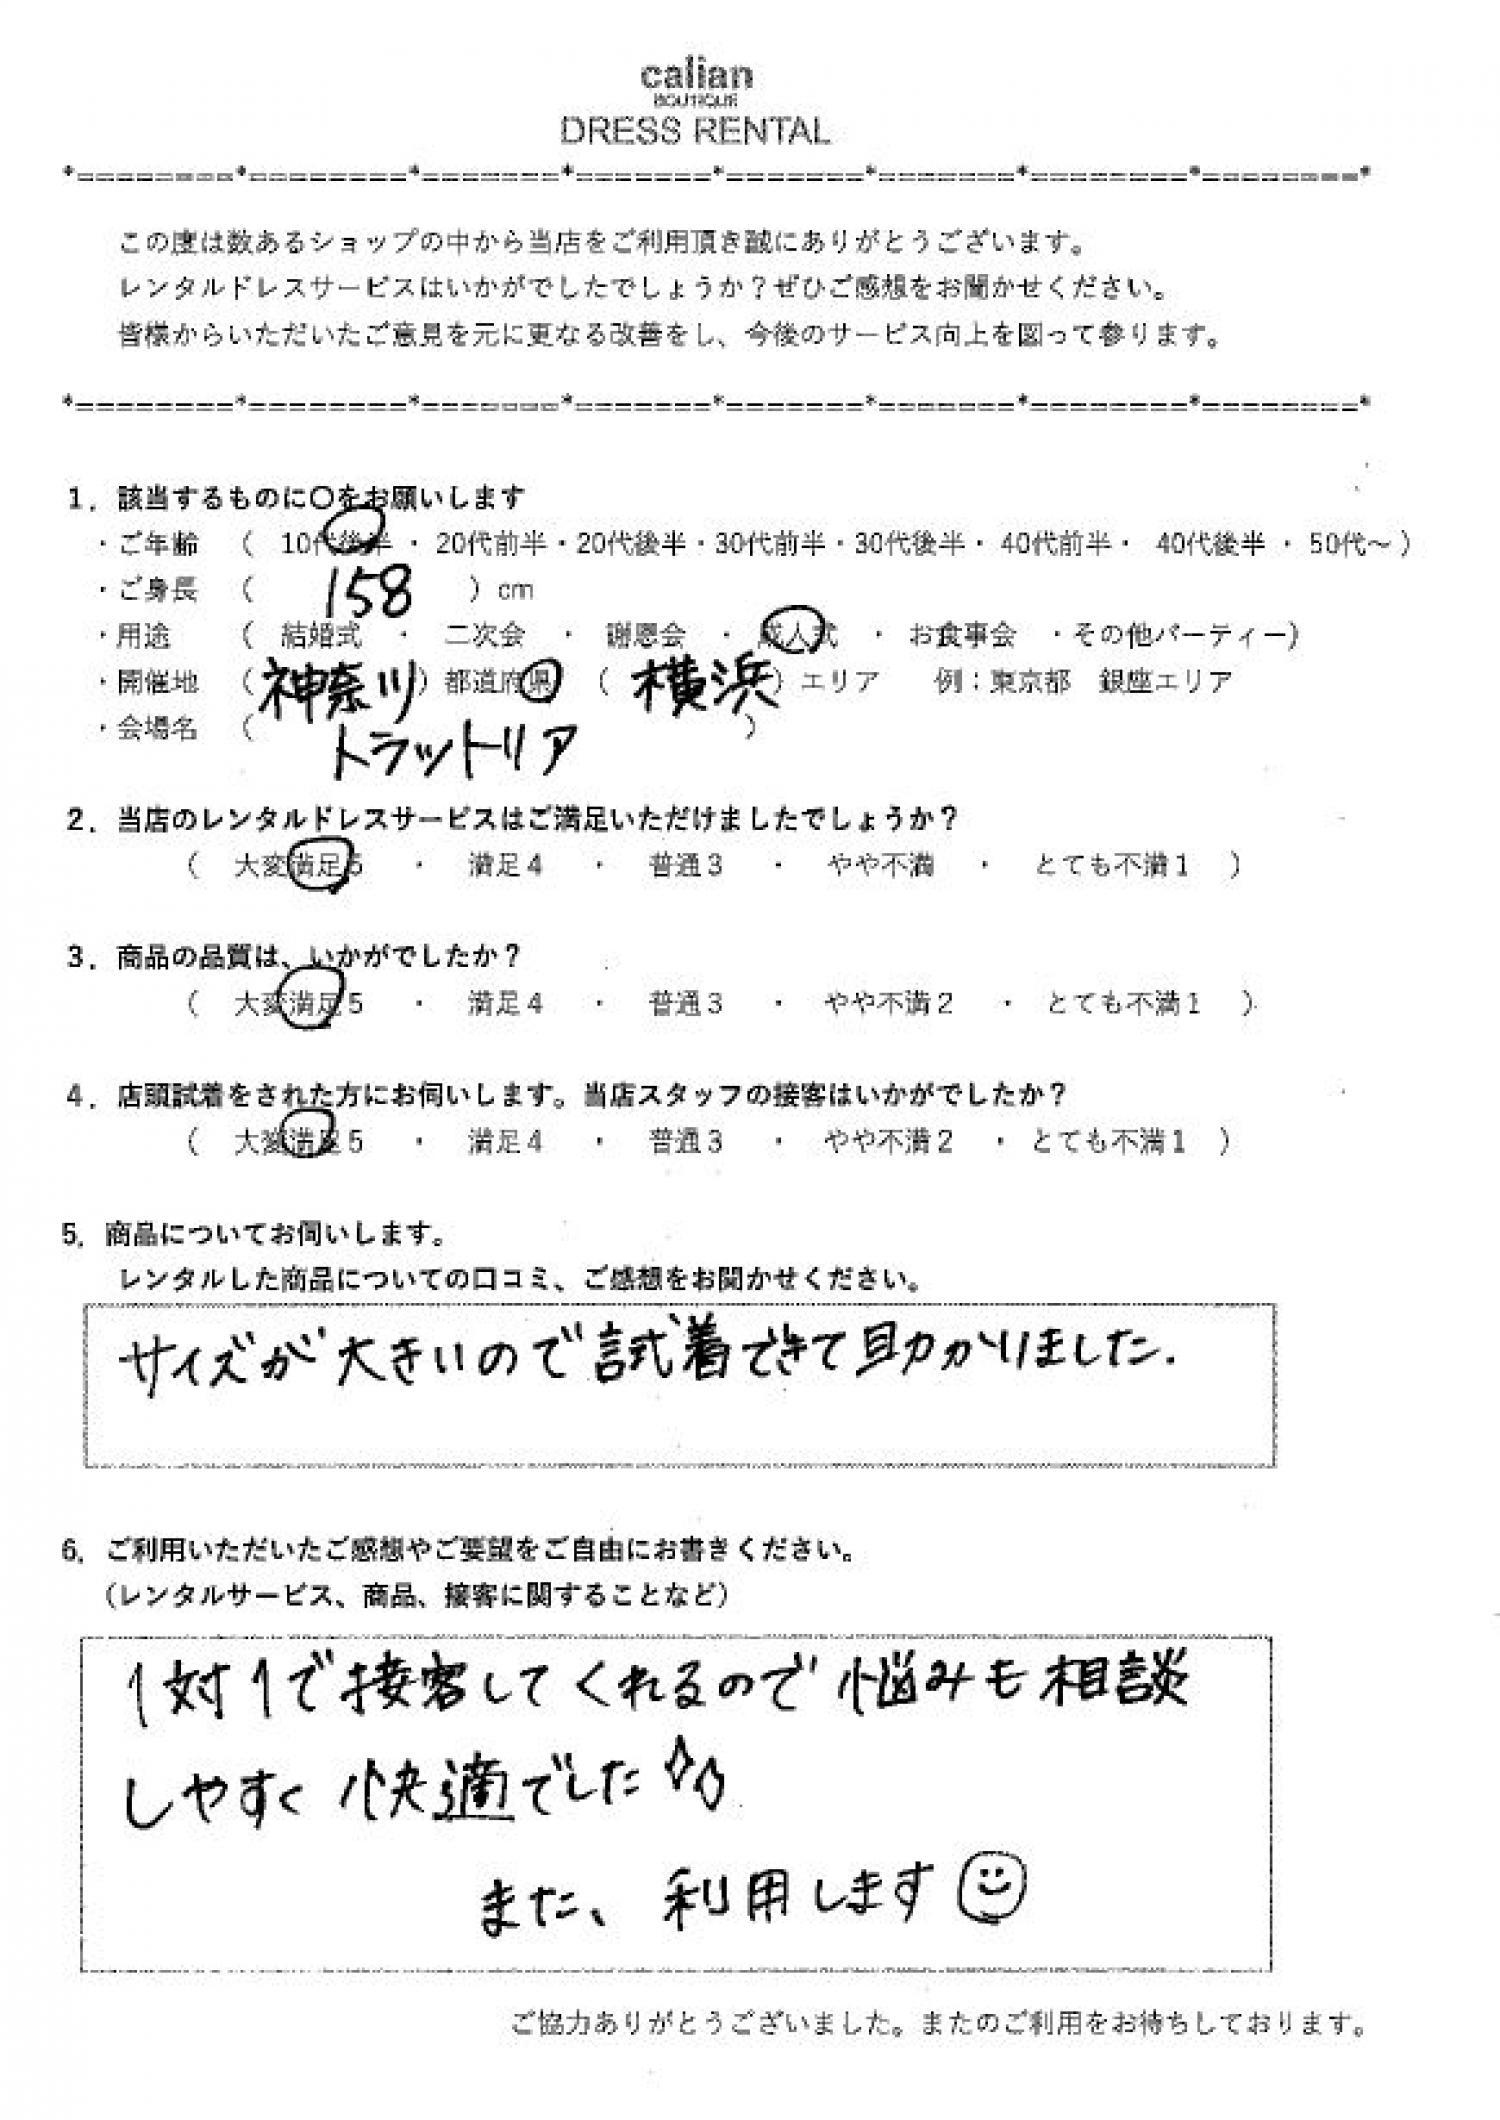 calian
BOUTIQUE
DRESS RENTAL
*========*========*=======*=======*=======*=======*========*========*
この度は数あるショップの中から当店をご利用頂き誠にありがとうございます。
レンタルドレスサービスはいかがでしたでしょうか？ぜひご感想をお聞かせください。
皆様からいただいたご意見を元に更なる改善をし、今後のサービス向上を図って参ります。
*========*========*=======*=======*=======*=======*========*========*
1．該当するものに〇をお願いします
・ご年齢 （ 10代後半 ・ 20代前半・20代後半・30代前半・30代後半・ 40代前半・ 40代後半 ・ 50代～ ）
・ご身長 （ 158 ）cm
・用途 （ 結婚式 ・ 二次会 ・ 謝恩会 ・ 成人式 ・ お食事会 ・その他パーティー）
・開催地 （ 神奈川 ）都道府県 （ 横浜 ）エリア 例：東京都 銀座エリア
・会場名 （ トラットリア ）
2．当店のレンタルドレスサービスはご満足いただけましたでしょうか？
（ 大変満足5 ・ 満足4 ・ 普通3 ・ やや不満 ・ とても不満1 ）
3．商品の品質は、いかがでしたか？
（ 大変満足5 ・ 満足4 ・ 普通3 ・ やや不満2 ・ とても不満1 ）
4．店頭試着をされた方にお伺いします。当店スタッフの接客はいかがでしたか？
（ 大変満足5 ・ 満足4 ・ 普通3 ・ やや不満2 ・ とても不満1 ）
5．商品についてお伺いします。
レンタルした商品についての口コミ、ご感想をお聞かせください。
サイズが大きいので試着できて助かりました.
6．ご利用いただいたご感想やご要望をご自由にお書きください。
（レンタルサービス、商品、接客に関することなど）
1対1で接客してくれるので悩みも相談
しやすく快適でした
また、利用します
ご協力ありがとうございました。またのご利用をお待ちしております。